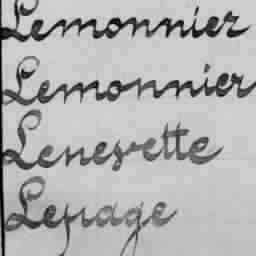 Lemonnier
Lemonnier
Lenevette
Lepage